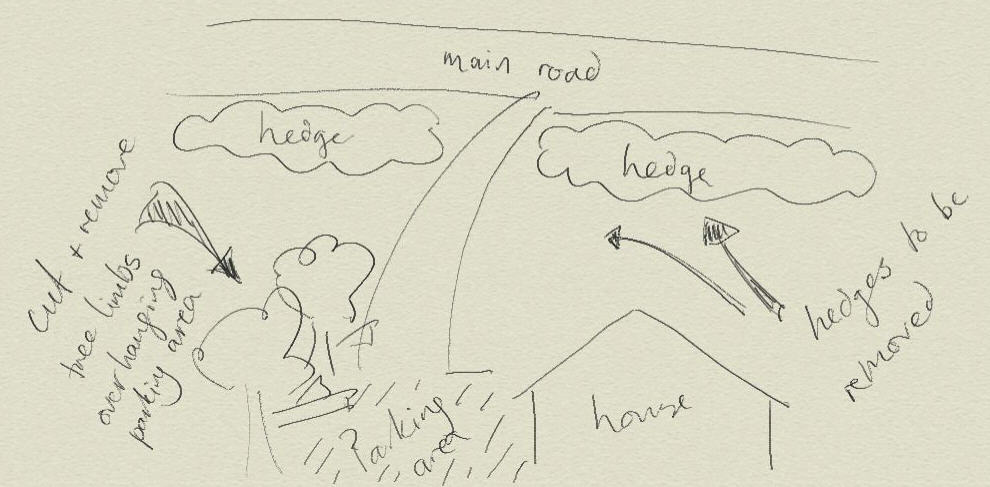 main road
hedge
hedge
cut + remove
tree limbs
overhanging
parking area
hedges to be
removed
house
Parking
area